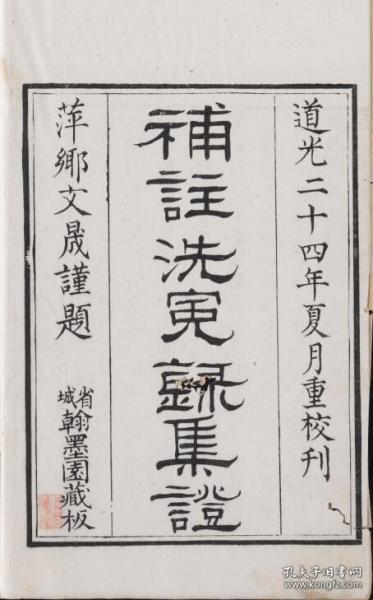 道光二十四年夏月重校刊
補註洗寃録集證
萍鄉文晟謹題
省城翰墨園藏板
孔夫子旧书网
www.kongfz.com